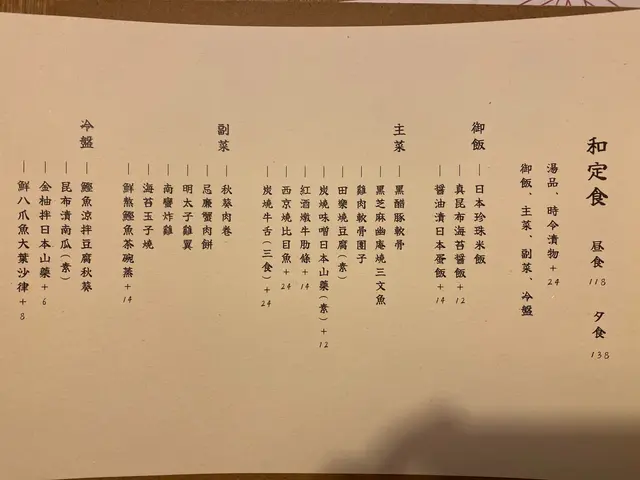 和定食 昼食 118 夕食 138
湯品、時令漬物+24
御飯、主菜、副菜、冷盤
御飯
—日本珍珠米飯
—真昆布海苔醤飯+12
—醤油漬日本蛋飯+14
主菜
—黑醋豚軟骨
—黑芝麻幽庵燒三文魚
—雞肉軟骨團子
—田樂燒豆腐(素)
—炭燒味噌日本山藥(素)+12
—紅酒燉牛肋條+14
—西京燒比目魚+24
—炭燒牛舌(三食)+24
副菜
—秋葵肉卷
—忌廉蟹肉餅
—明太子雞翼
—南蠻炸雞
—海苔玉子燒
—鮮熬鰹魚茶碗蒸+14
冷盤
—鰹魚涼拌豆腐秋葵
—昆布漬南瓜(素)
—金柚拌日本山藥+6
—鮮八爪魚大葉沙律+8